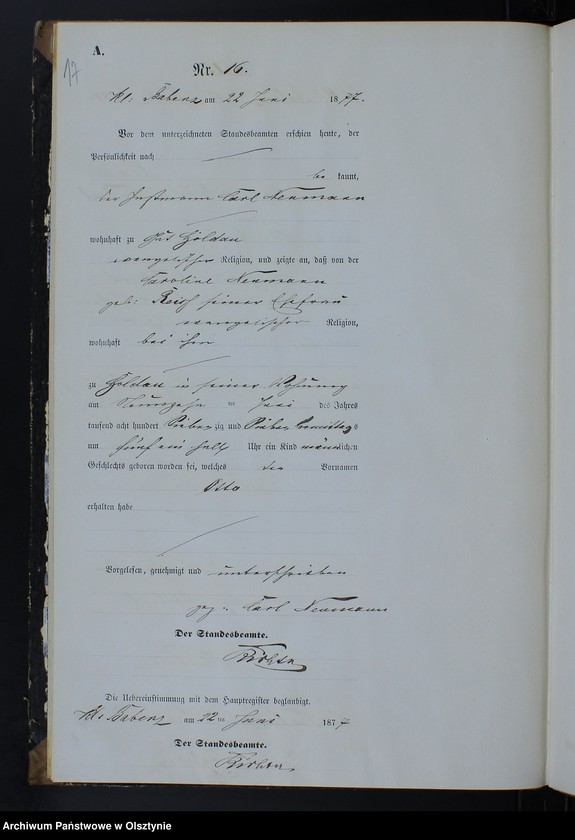 A.
17
Nr. 16.
Kl: Babenz am 22 Juni 1877.
Vor dem unterzeichneten Standesbeamten erschien heute, der
Persönlichkeit nach
be kannt,
der Instmann Carl Neumann
wohnhaft zu Gut Goldau
evangelischer Religion, und zeigte an, daß von der
Caroline Neumann
geb: Reich seiner Ehefrau
evangelischer Religion,
wohnhaft bei ihm
zu Goldau in seiner Wohnung
am Neunzehn ten Juni des Jahres
tausend acht hundert Sieben zig und Sieben Vormittags
um fünf ein halb Uhr ein Kind männlichen
Geschlechts geboren worden sei, welches den Vornamen
Otto
erhalten habe
Vorgelesen, genehmigt und unterschrieben
gez: Carl Neumann
Der Standesbeamte.
Die Uebereinstimmung mit dem Hauptregister beglaubigt.
Kl: Babenz am 22ten Juni 1877
Der Standesbeamte.
Archiwum Państwowe w Olsztynie